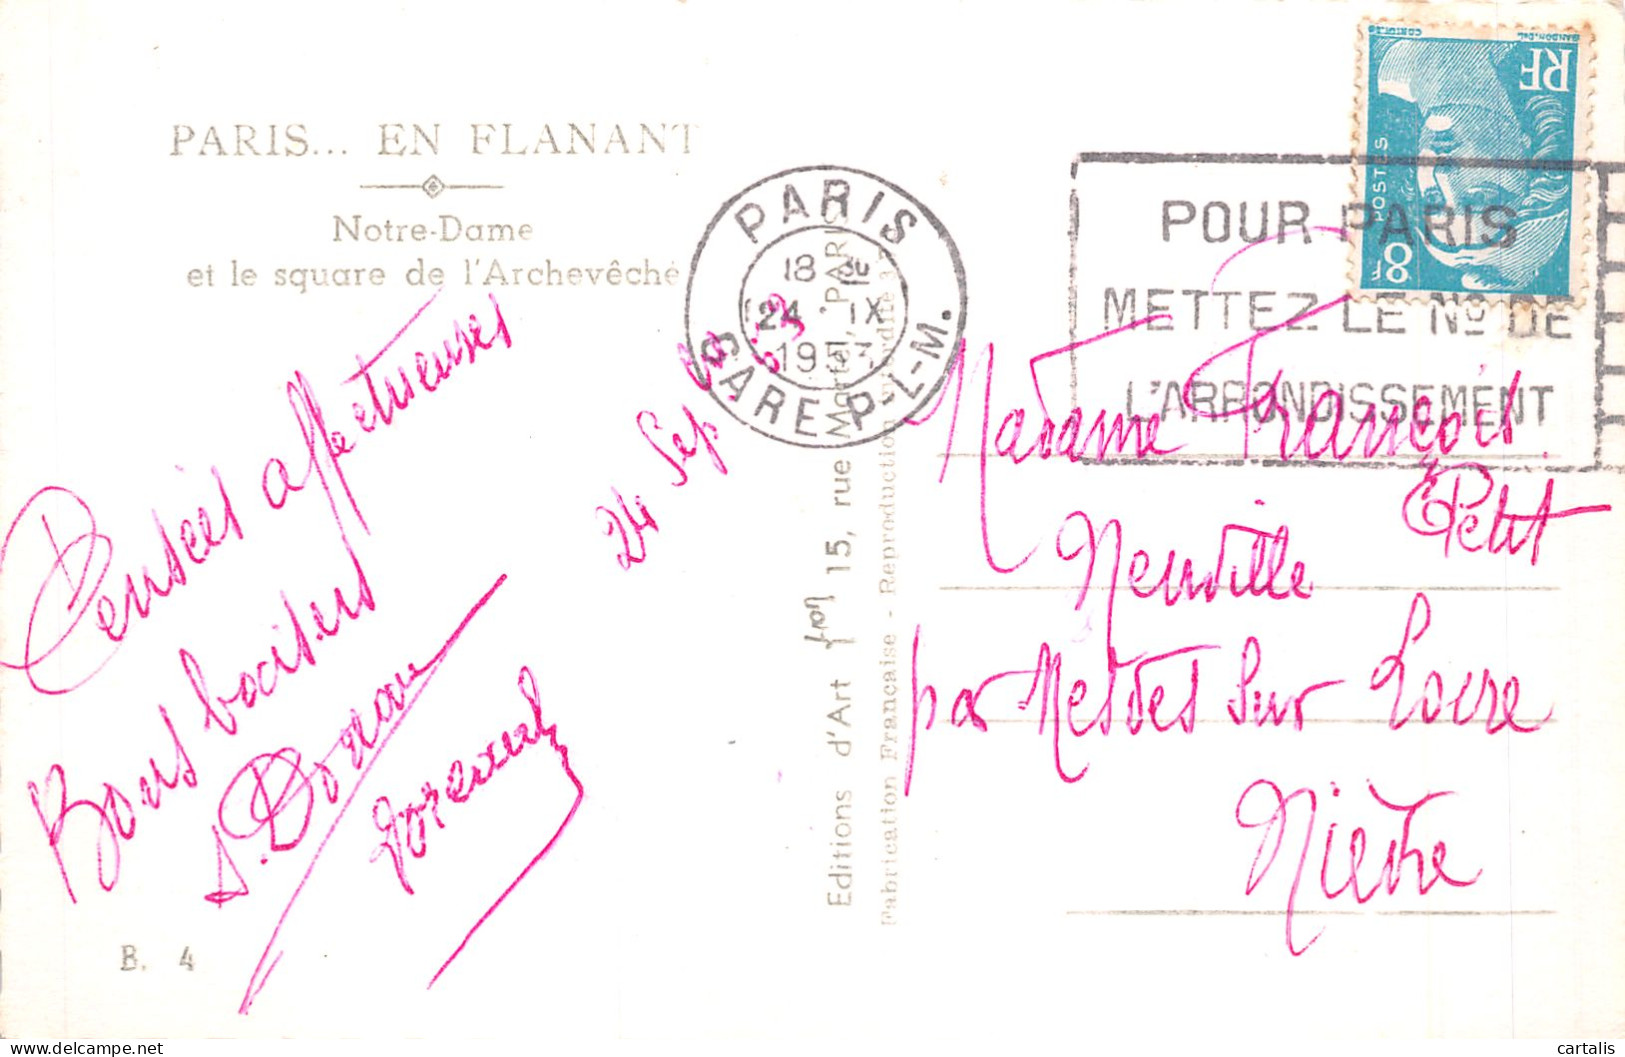 PARIS... EN FLANANT
Notre-Dame
et le square de l'Archevêché
Pensées affectueuses
Bons baisers
24 Sep
B. 4
PARIS
18
24 · IX
1953
GARE P-L-M.
Editions d'Art 15, rue Martel, PARIS
Fabrication Française - Reproduction interdite
POUR PARIS
METTEZ LE No DE
L'ARRONDISSEMENT
RF
POSTES
8F
GANDON.DEL
Madame François
Petit
Neuville
par Mesves sur Loire
Nièvre
cartalis